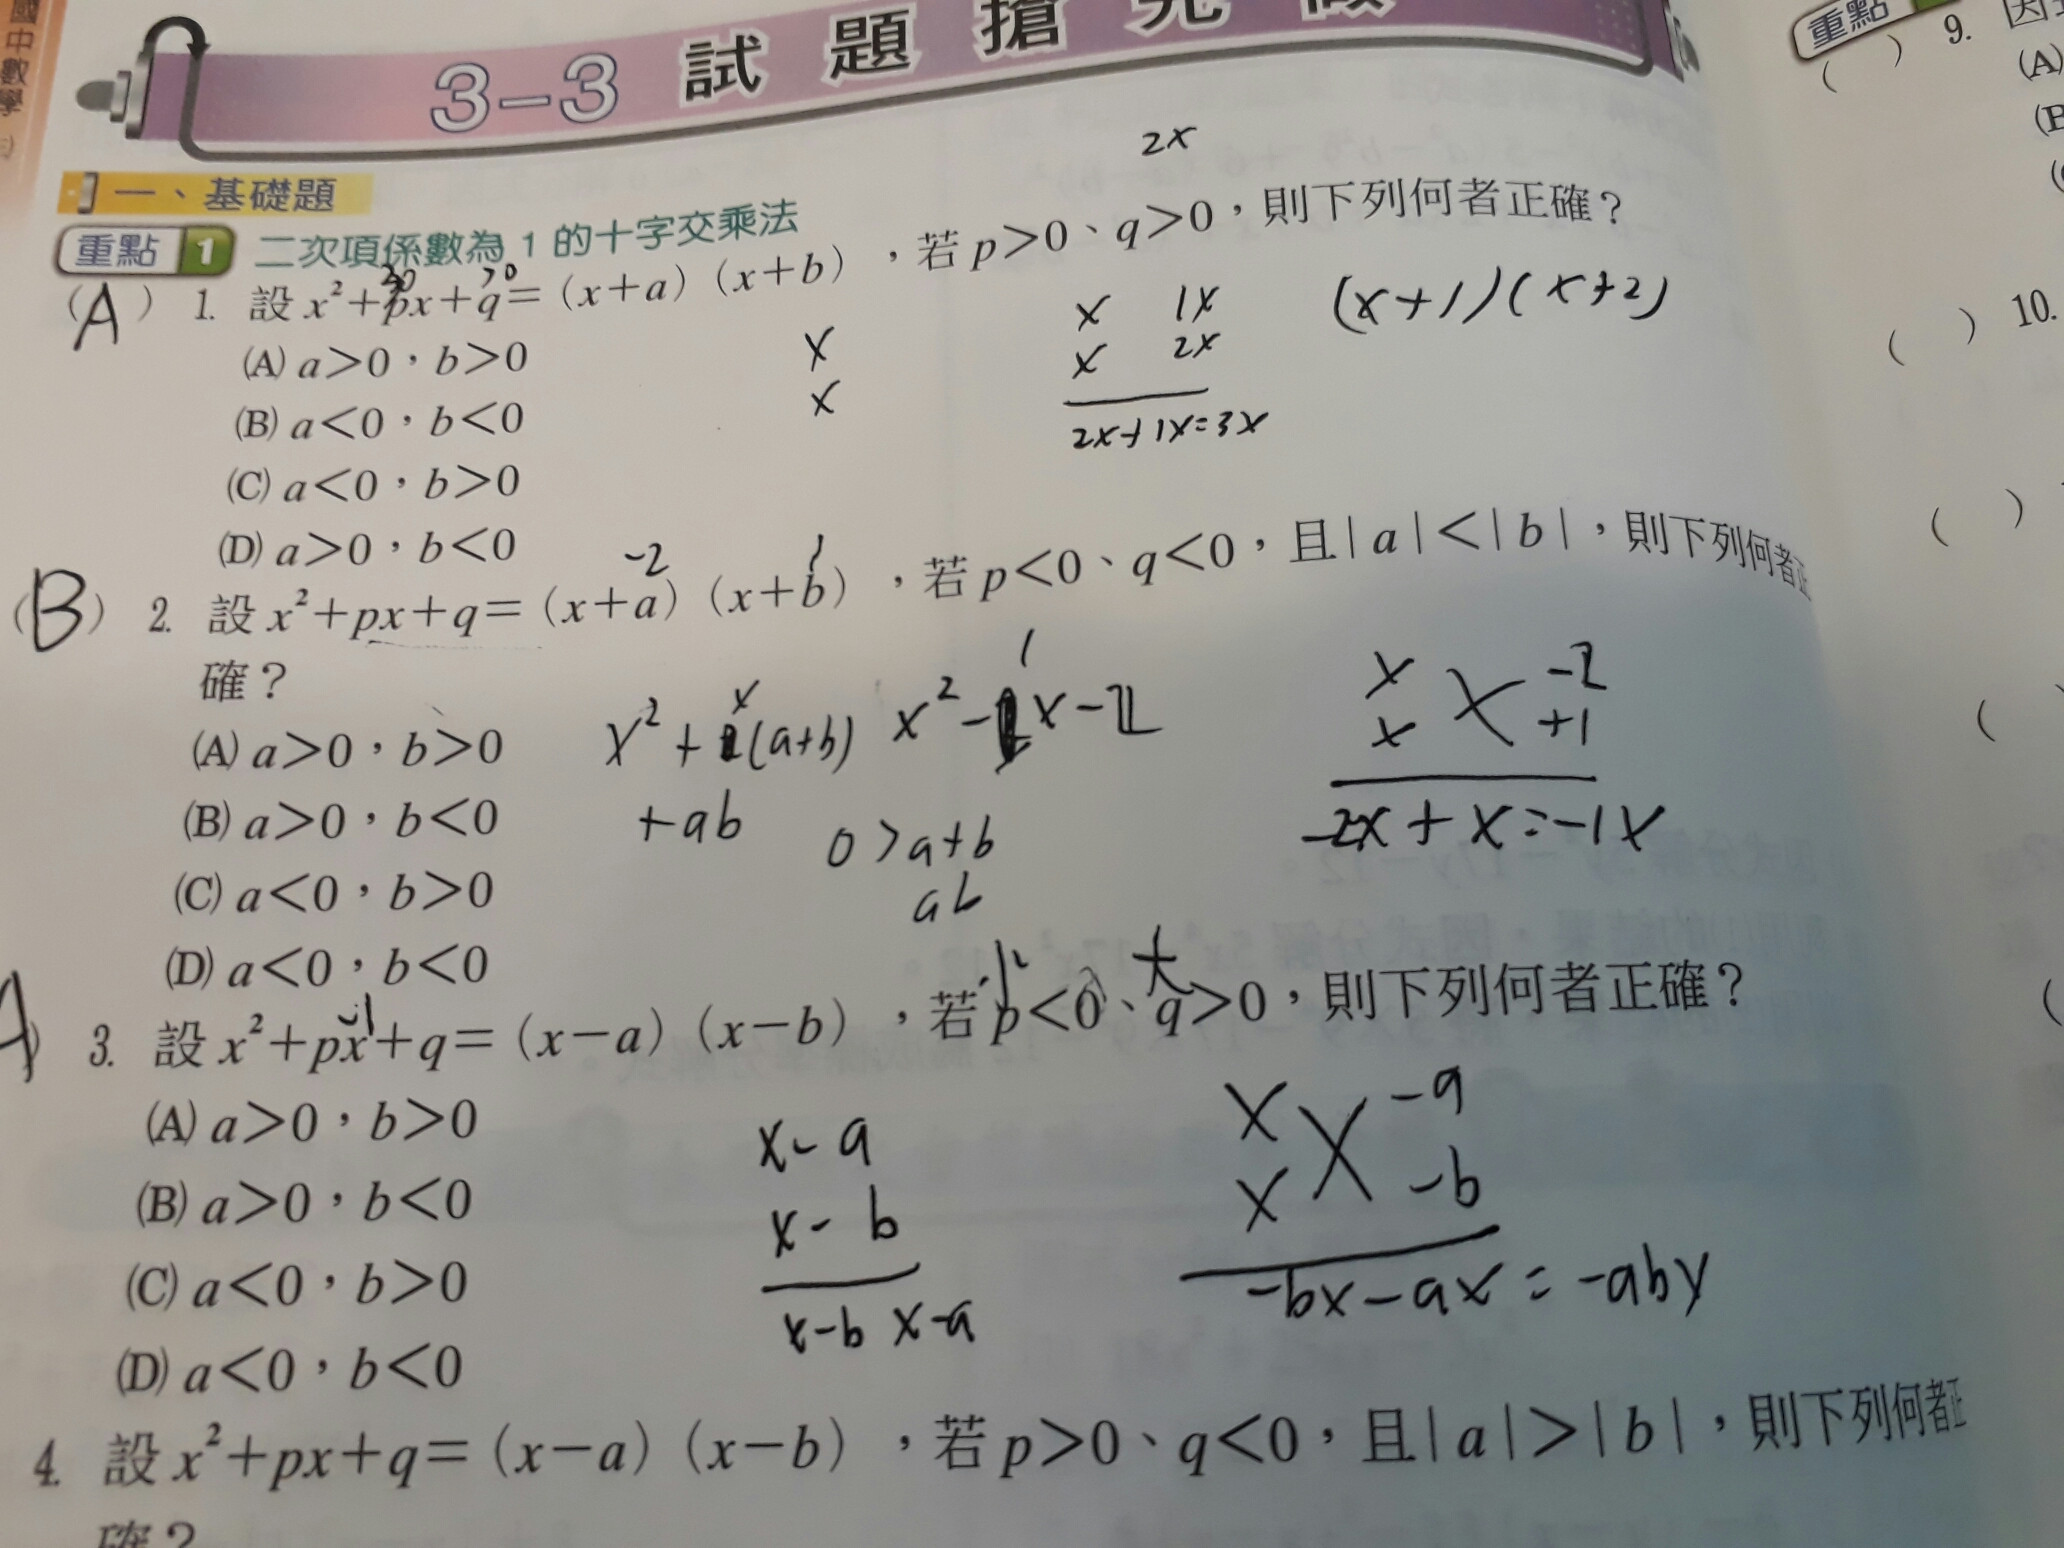 國中數學
3-3 試題搶先做
2x
一、基礎題
重點 1 二次項係數為 1 的十字交乘法
(A) 1. 設 x²+px+q=(x+a)(x+b)，若 p>0、q>0，則下列何者正確？
>0
(A) a>0，b>0
(B) a<0，b<0
(C) a<0，b>0
(D) a>0，b<0
x
x
x 1x
x 2x
2x+1x=3x
(x+1)(x+2)
-2 1
(B) 2. 設 x²+px+q=(x+a)(x+b)，若 p<0、q<0，且|a|<|b|，則下列何者正
確？
(A) a>0，b>0
(B) a>0，b<0
(C) a<0，b>0
(D) a<0，b<0
x²+x(a+b)
+ab
x²-1x-2
0>a+b
ab
x -2
x +1
-2x+x=-1x
A 3. 設 x²+px+q=(x-a)(x-b)，若 p<0、q>0，則下列何者正確？
(A) a>0，b>0
(B) a>0，b<0
(C) a<0，b>0
(D) a<0，b<0
x-a
x-b
x-b x-a
x -a
x -b
-bx-ax=-abx
4. 設 x²+px+q=(x-a)(x-b)，若 p>0、q<0，且|a|>|b|，則下列何者正
確？
重點
( ) 9. 因
(A)
(B
( ) 10.
( )